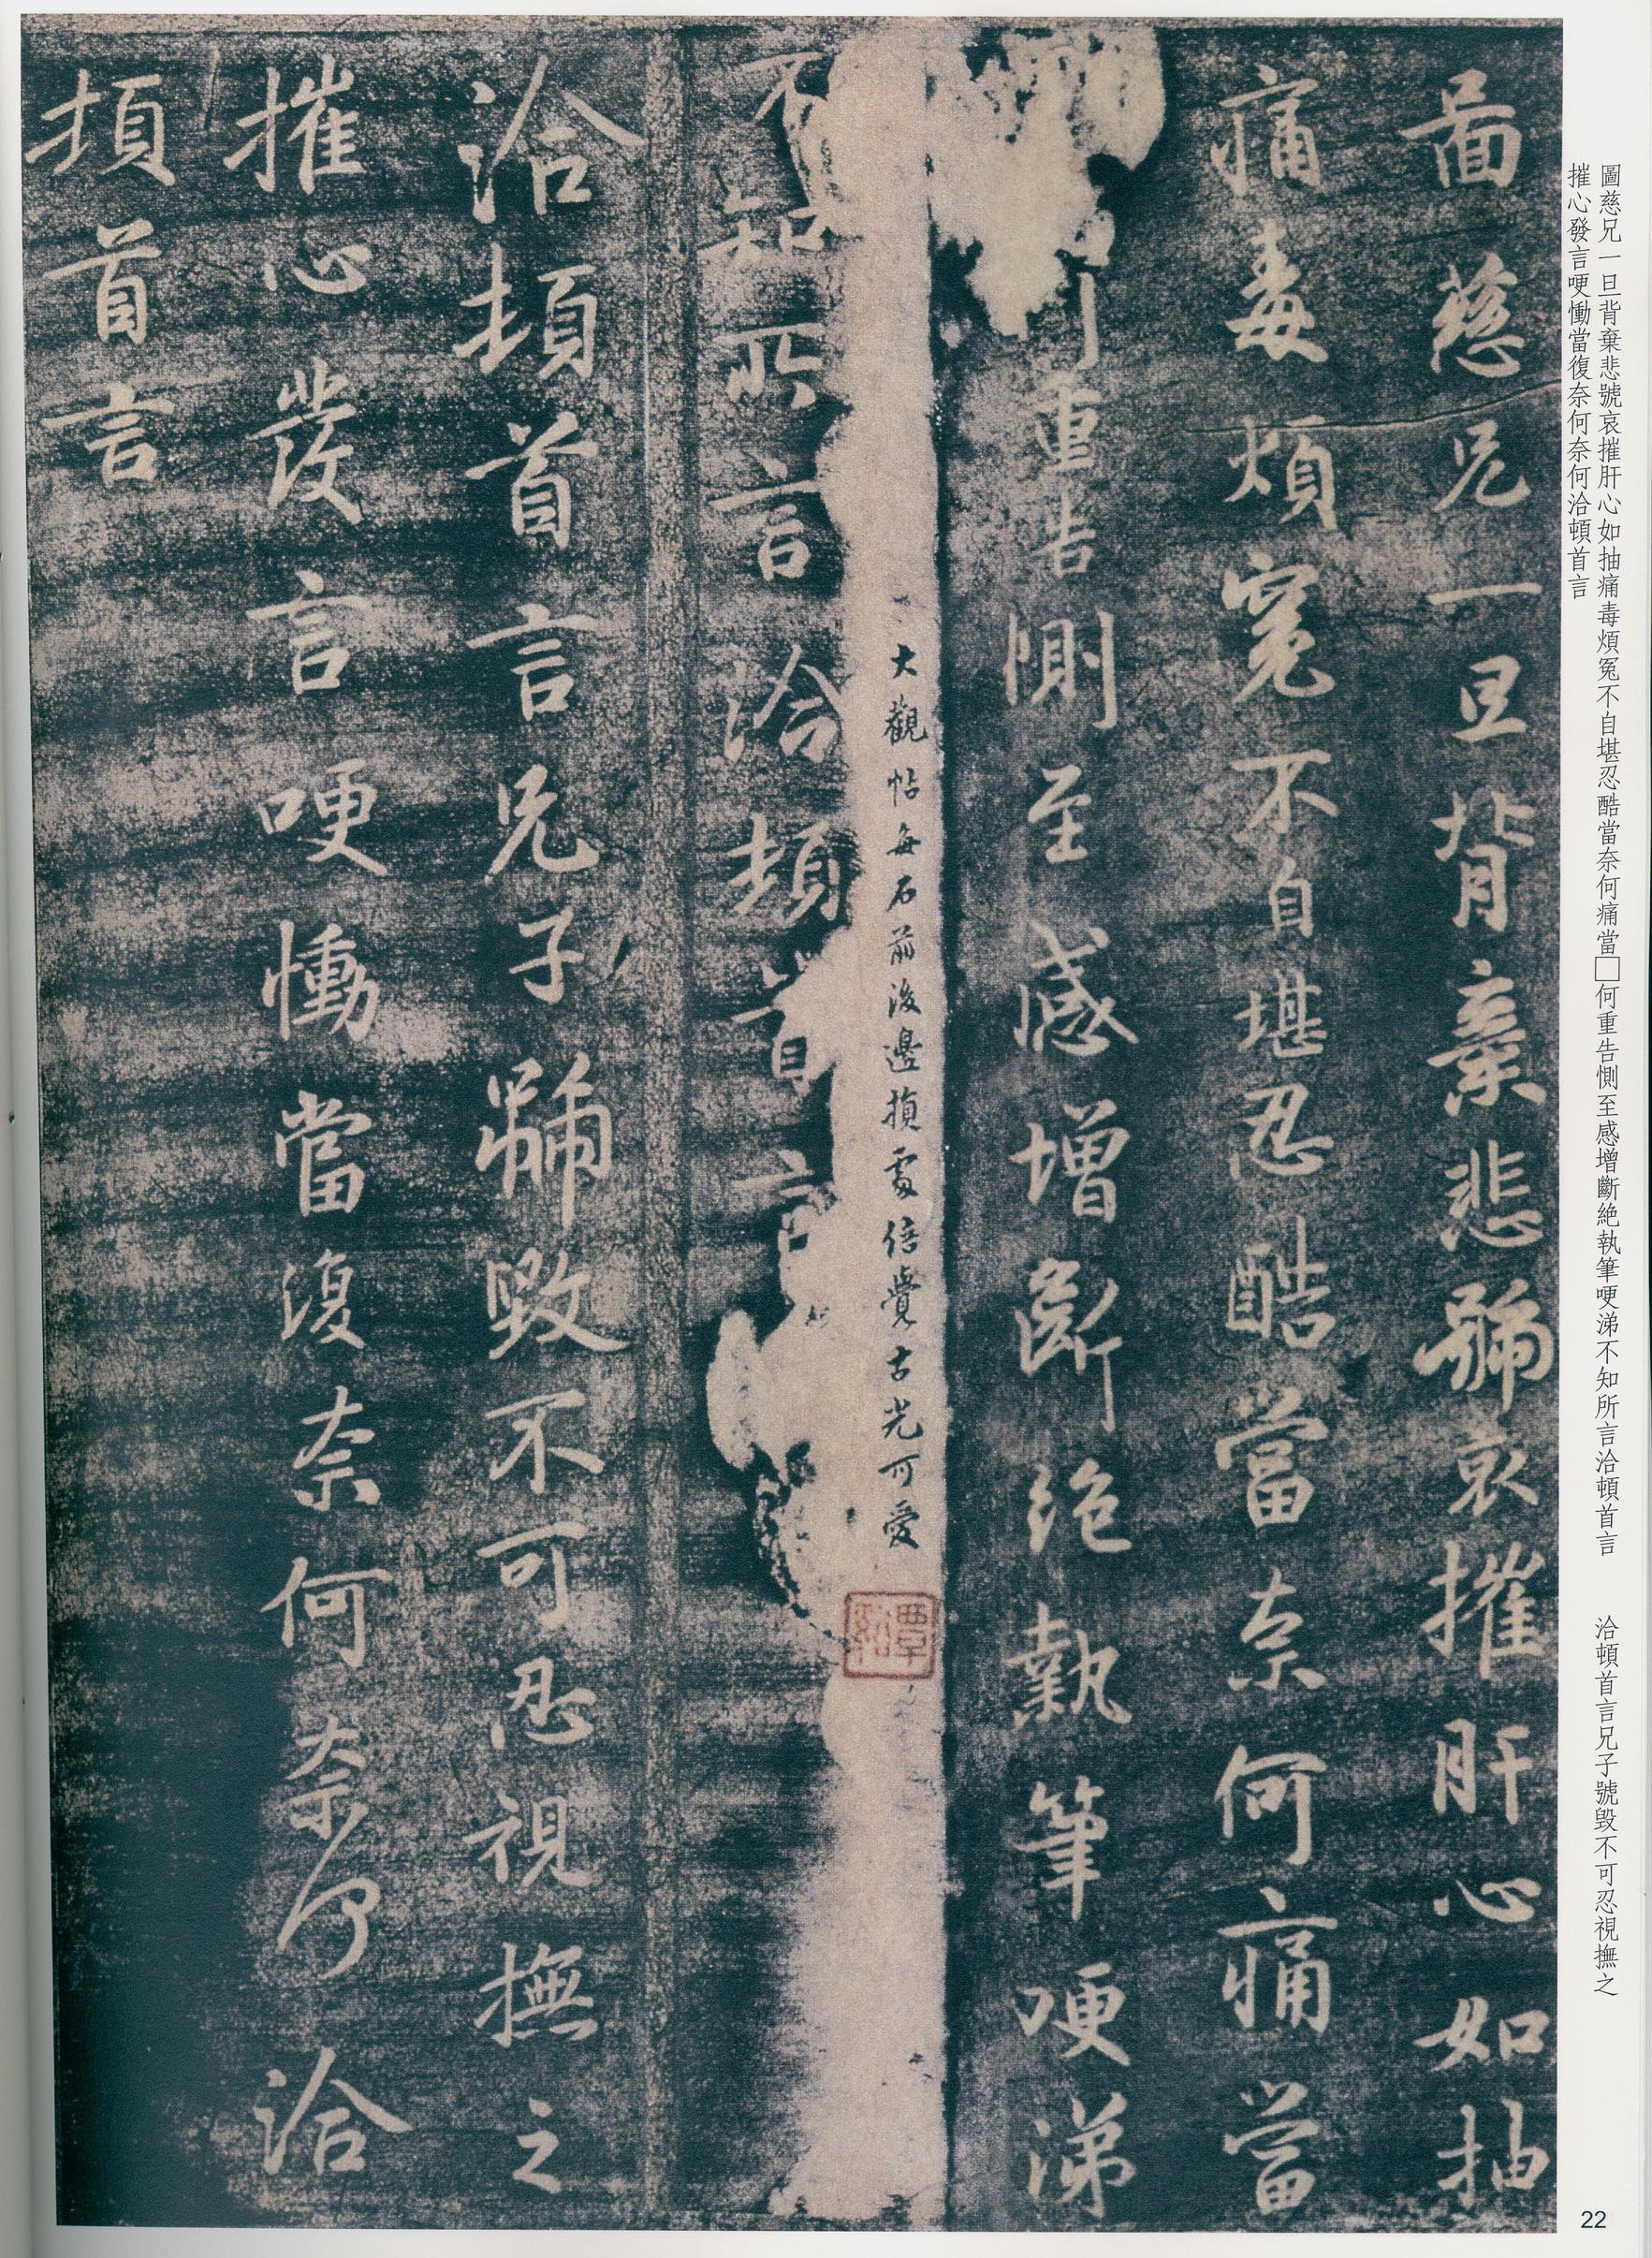 圖慈兄一旦背棄悲號哀摧肝心如抽痛毒煩冤不自堪忍酷當奈何痛當□何重告惻至感增斷絶執筆哽涕不知所言洽頓首言　洽頓首言兄子號毀不可忍視撫之
摧心發言哽慟當復奈何奈何洽頓首言
啚慈兄一旦背棄悲號哀摧肝心如抽
痛毒煩冤不自堪忍酷當奈何痛當
何重告惻至感增斷絶執筆哽涕
大觀帖每石前後邊損處倍覺古光可愛
不知所言洽頓首言
洽頓首言兄子號毀不可忍視撫之
摧心發言哽慟當復奈何奈何洽
頓首言
22